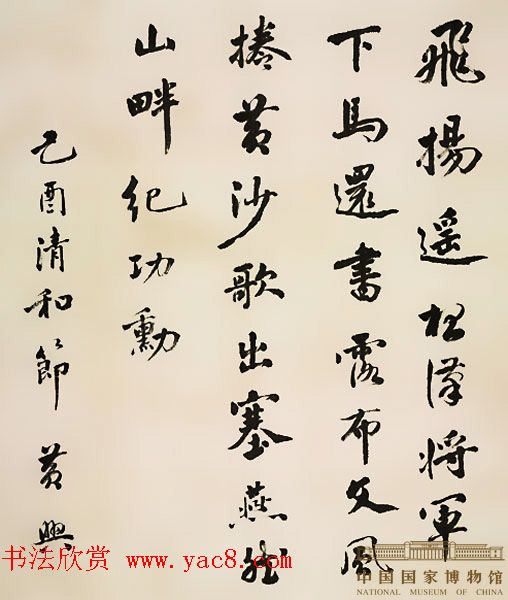 飛揚遥漢将軍
下馬還書露布文風
捲黄沙歌出塞燕然
山畔紀功勳
己酉清和節 黄興
书法欣赏 www.yac8.com
中国国家博物馆
NATIONAL MUSEUM OF CHINA